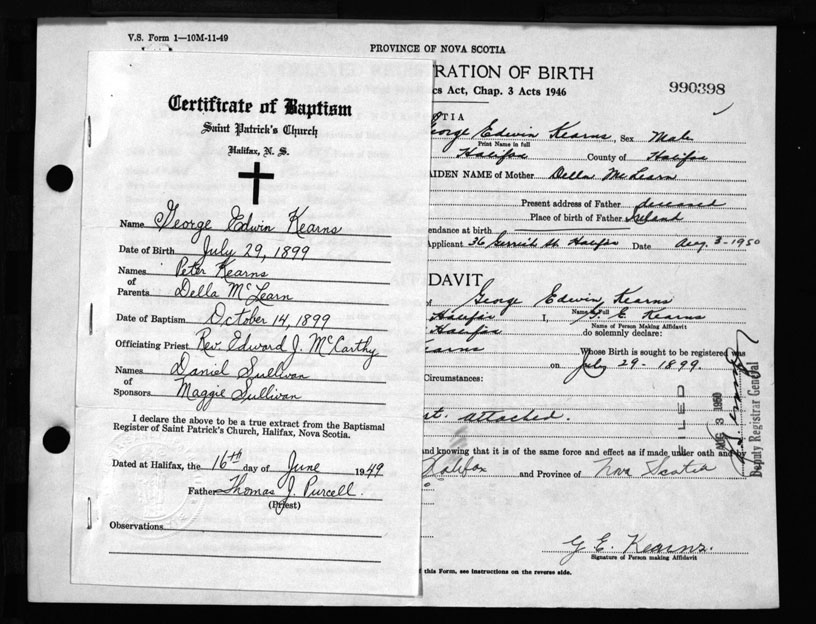 V.S. Form 1—10M-11-49
PROVINCE OF NOVA SCOTIA
RATION OF BIRTH
cs Act, Chap. 3 Acts 1946
990398
Certificate of Baptism
Saint Patrick's Church
Halifax, N. S.
Name George Edwin Kearns
Date of Birth July 29, 1899
Names Peter Kearns
of
Parents Della McLearn
Date of Baptism October 14, 1899
Officiating Priest Rev. Edward J. McCarthy
Names Daniel Sullivan
of
Sponsors Maggie Sullivan
I declare the above to be a true extract from the Baptismal
Register of Saint Patrick's Church, Halifax, Nova Scotia.
Dated at Halifax, the 16th day of June 1949
Father Thomas J. Purcell.
(Priest)
Observations
TIA
George Edwin Kearns, Sex Male
Print Name in full
Halifax County of Halifax
AIDEN NAME of Mother Della McLearn
Present address of Father deceased
Place of birth of Father Ireland
endance at birth
Applicant 36 Gerrish St. Halifax Date Aug. 3-1950
DAVIT
of George Edwin Kearns
Name in Full
Halifax I, G. E. Kearns
Name of Person Making Affidavit
Halifax do solemnly declare:
Kearns Whose Birth is sought to be registered was
on July 29-1899.
Circumstances:
rt. attached.
and knowing that it is of the same force and effect as if made under oath and
Halifax and Province of Nova Scotia
G. E. Kearns.
Signature of Person making Affidavit
this Form, see instructions on the reverse side.
FILED
AUG 3 1950
Deputy Registrar General